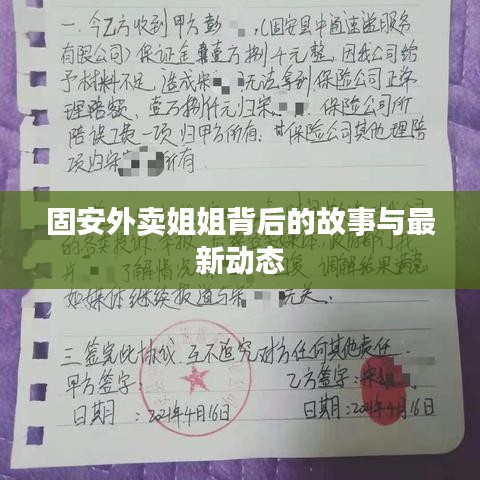 一.今乙方收到甲方彭 ,(固安县中通速溢服务
有限公司)保证金壹万捌仟元整,因我公司给
予材料不足,造成宋 无法拿到保险公司正常
理赔额,壹万捌仟元归宋 .保险公司所
陪误工费一项归甲方所有.其保险公司其他理陪
项归宋 所有.
固安外卖姐姐背后的故事与最
新动态
了解情况 调解结果满意
如媒体继续报道与宋 无关.
三.签完此协议.互不追究对方任何其他责任.
甲方签字: 乙方签字:宋
日期: 2021年4月16日 日期:2021年4月16日